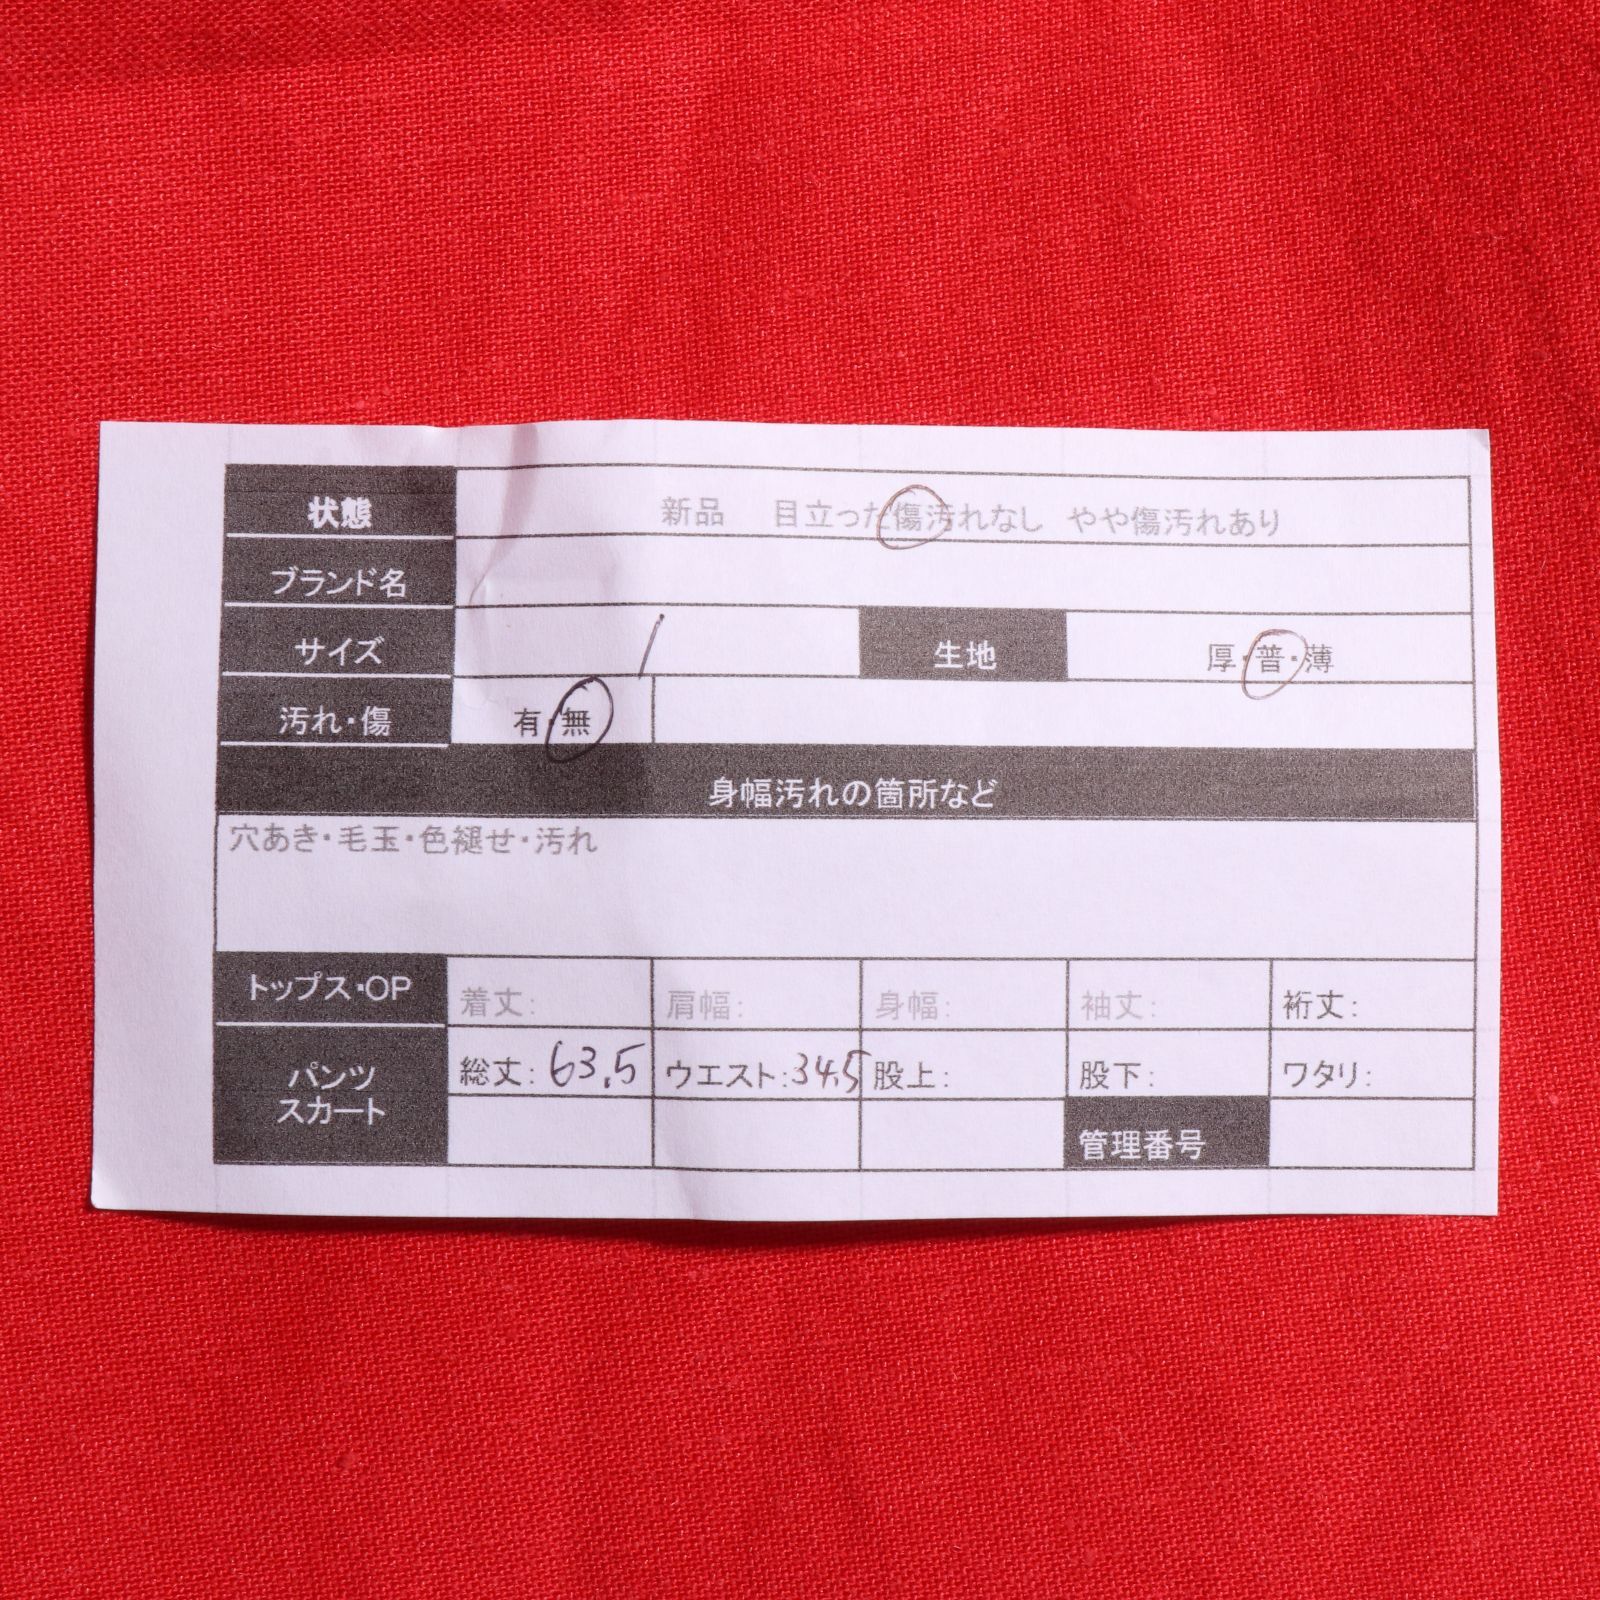 状態 新品 目立った傷汚れなし やや傷汚れあり
ブランド名
サイズ 1 生地 厚・普・薄
汚れ・傷 有・無
身幅汚れの箇所など
穴あき・毛玉・色褪せ・汚れ
トップス・OP 着丈: 肩幅: 身幅: 袖丈: 裄丈:
パンツ 総丈: 63.5 ウエスト: 34.5 股上: 股下: ワタリ:
スカート
管理番号